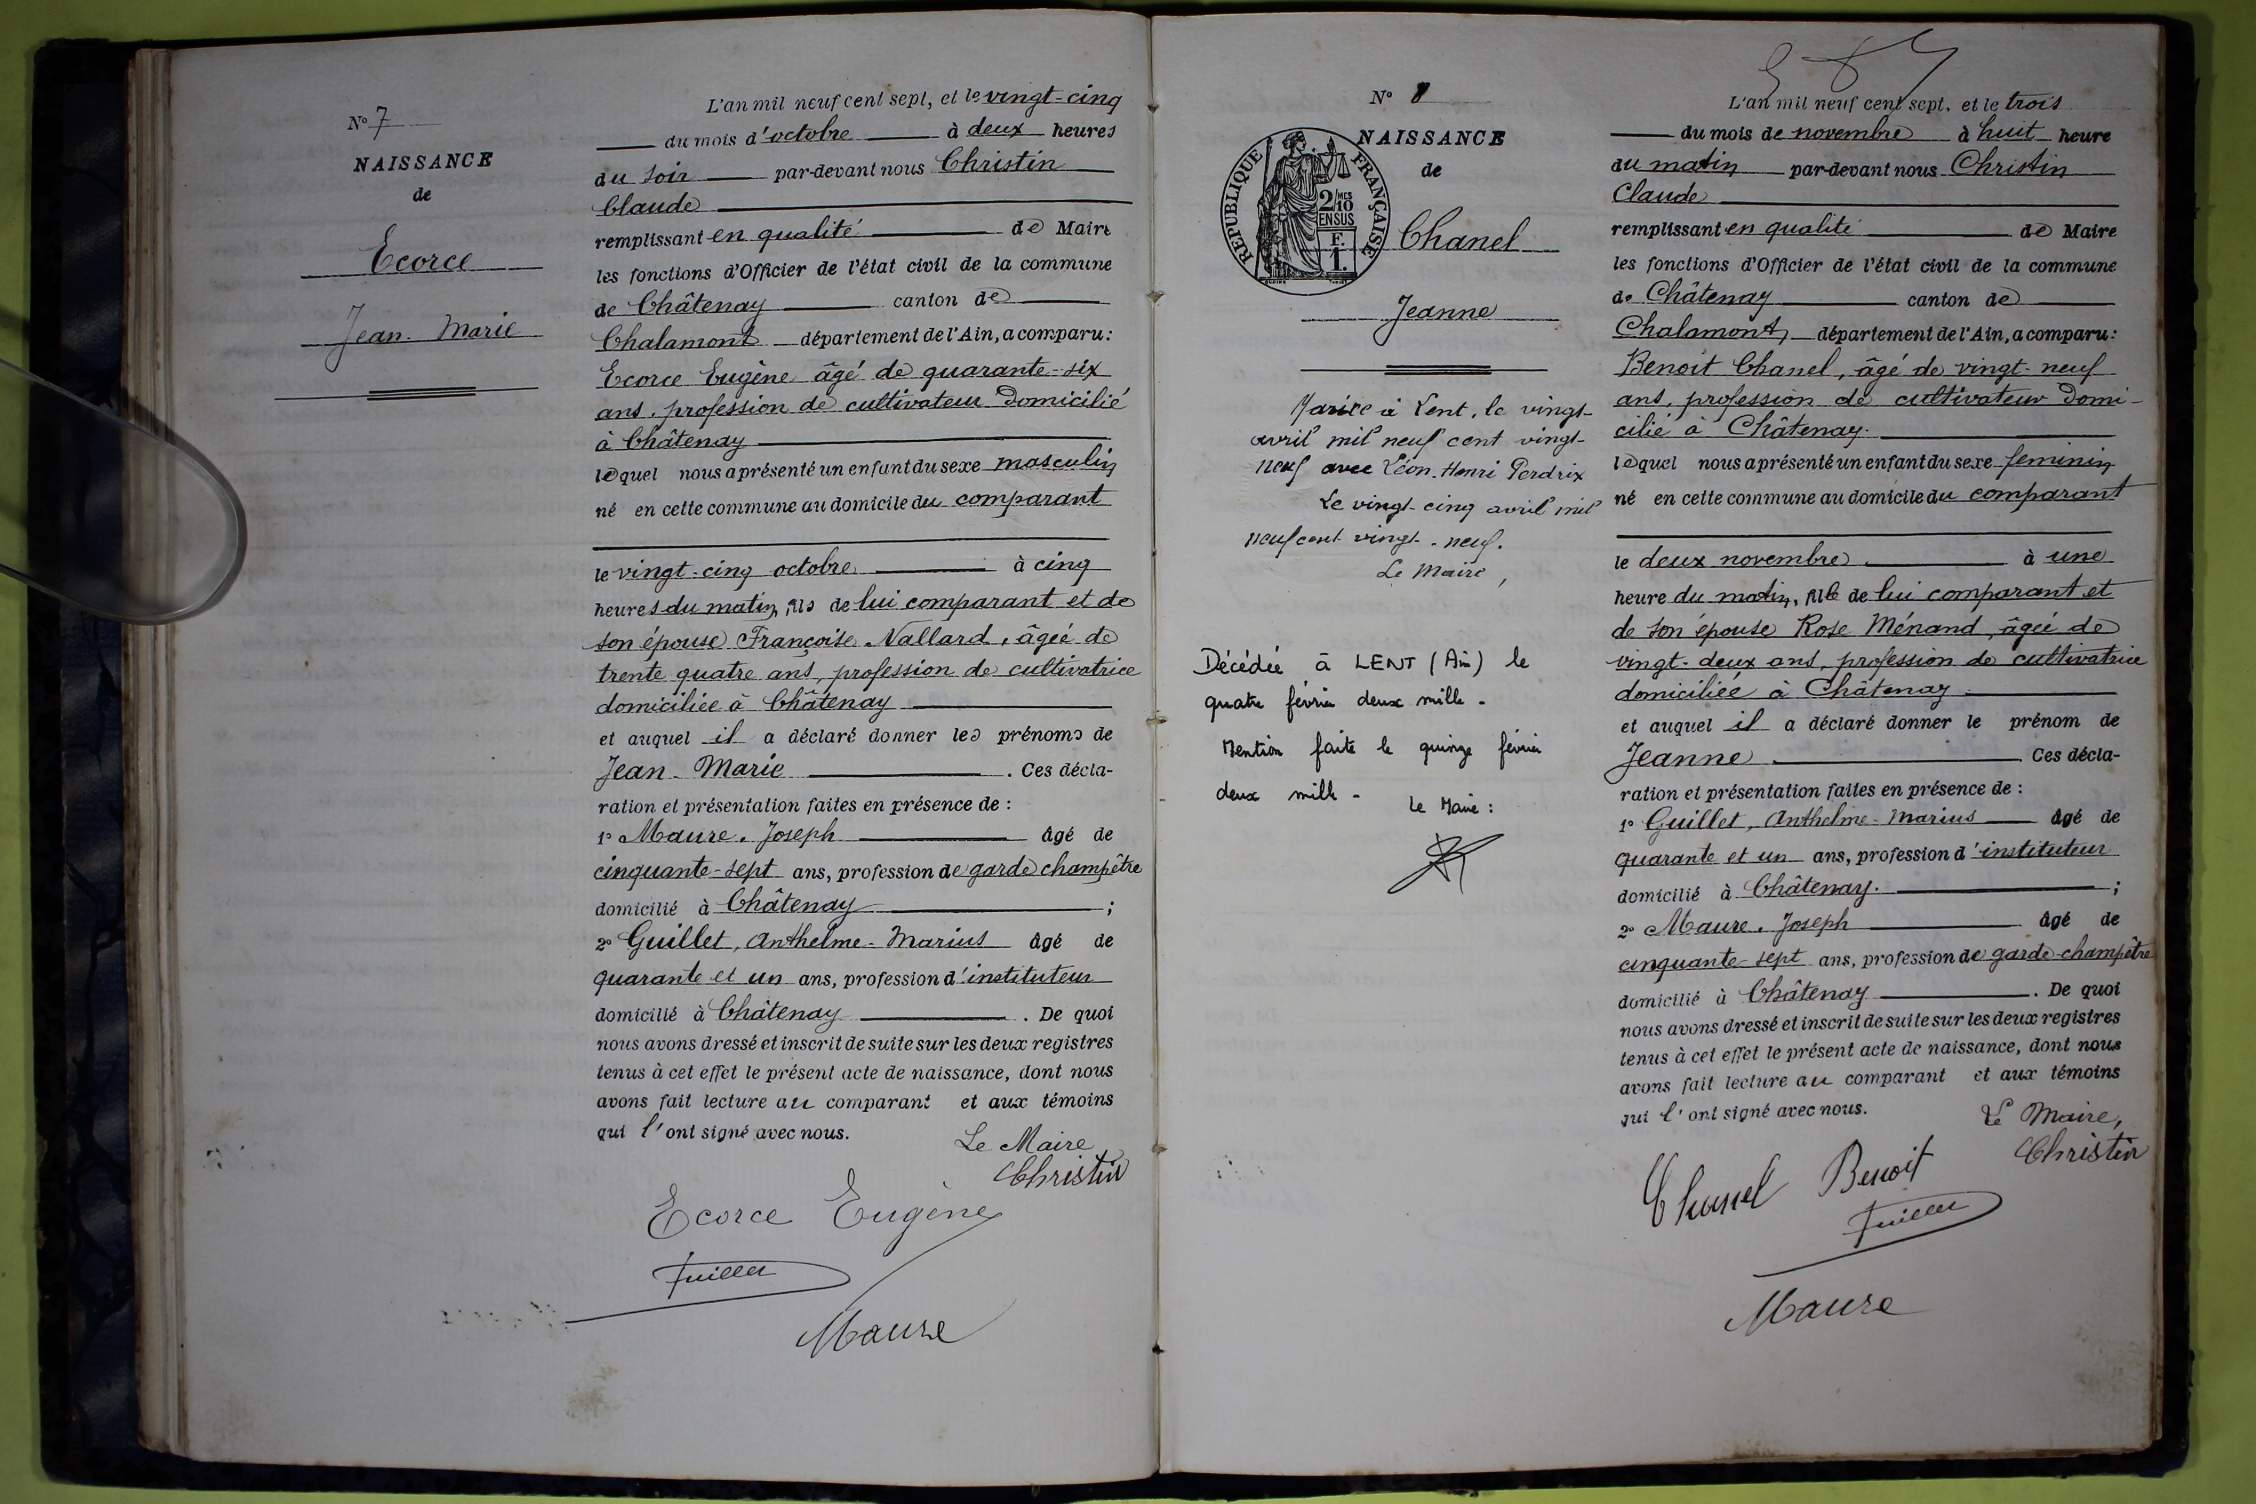 N° 7
NAISSANCE
de
Ecorce
Jean-Marie
L'an mil neuf cent sept, et le vingt-cinq
du mois d'octobre à deux heures
du soir par-devant nous Christin
Claude
remplissant en qualité de Maire
les fonctions d'Officier de l'état civil de la commune
de Châtenay canton de
Chalamont département de l'Ain, a comparu:
Ecorce Eugène âgé de quarante-six
ans, profession de cultivateur domicilié
à Châtenay
lequel nous a présenté un enfant du sexe masculin
né en cette commune au domicile du comparant
le vingt-cinq octobre à cinq
heures du matin, fils de lui comparant et de
son épouse Françoise Nallard, âgée de
trente quatre ans, profession de cultivatrice
domiciliée à Châtenay
et auquel il a déclaré donner les prénoms de
Jean-Marie. Ces décla-
ration et présentation faites en présence de :
1° Maure, Joseph âgé de
cinquante-sept ans, profession de garde champêtre
domicilié à Châtenay ;
2° Guillet, Anthelme-Marius âgé de
quarante et un ans, profession d'instituteur
domicilié à Châtenay. De quoi
nous avons dressé et inscrit de suite sur les deux registres
tenus à cet effet le présent acte de naissance, dont nous
avons fait lecture au comparant et aux témoins
qui l'ont signé avec nous.
Le Maire
Christin
Ecorce Eugène
Guillet
Maure
N° 8
NAISSANCE
de
REPUBLIQUE FRANÇAISE
2/10 MES
EN SUS
F.
1.
Chanel
Jeanne
Mariée à Lent, le vingt-
avril mil neuf cent vingt-
neuf avec Léon-Henri Perdrix
Le vingt-cinq avril mil
neuf cent vingt-neuf.
Le Maire,
Décédée à LENT (Ain) le
quatre février deux mille -
Mention faite le quinze février
deux mille -
Le Maire :
L'an mil neuf cent sept, et le trois
du mois de novembre à huit heure
du matin par-devant nous Christin
Claude
remplissant en qualité de Maire
les fonctions d'Officier de l'état civil de la commune
de Châtenay canton de
Chalamont, département de l'Ain, a comparu:
Benoit Chanel, âgé de vingt-neuf
ans, profession de cultivateur domi-
cilié à Châtenay.
lequel nous a présenté un enfant du sexe feminin
né en cette commune au domicile du comparant
le deux novembre à une
heure du matin, fille de lui comparant et
de son épouse Rose Ménand, âgée de
vingt-deux ans, profession de cultivatrice
domiciliée à Châtenay
et auquel il a déclaré donner le prénom de
Jeanne Ces décla-
ration et présentation faites en présence de :
1° Guillet, Anthelme-Marius âgé de
quarante et un ans, profession d'instituteur
domicilié à Châtenay. ;
2° Maure, Joseph âgé de
cinquante-sept ans, profession de garde-champêtre
domicilié à Châtenay. De quoi
nous avons dressé et inscrit de suite sur les deux registres
tenus à cet effet le présent acte de naissance, dont nous
avons fait lecture au comparant et aux témoins
qui l'ont signé avec nous.
Le Maire,
Christin
Chanel Benoit
Guillet
Maure